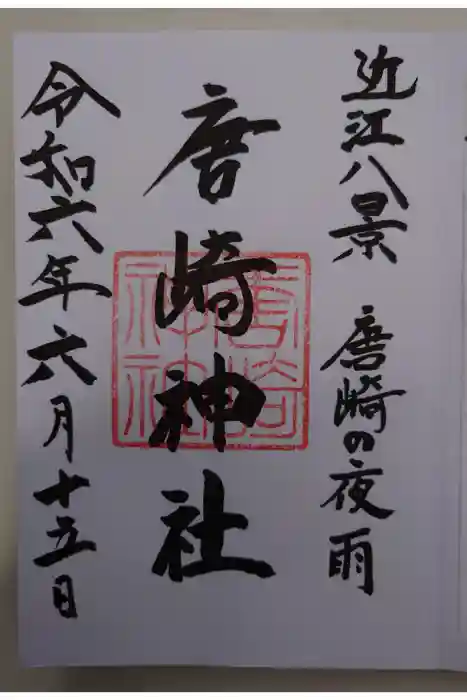 近江八景 唐崎の夜雨
唐崎神社
唐崎神社
令和六年六月十五日